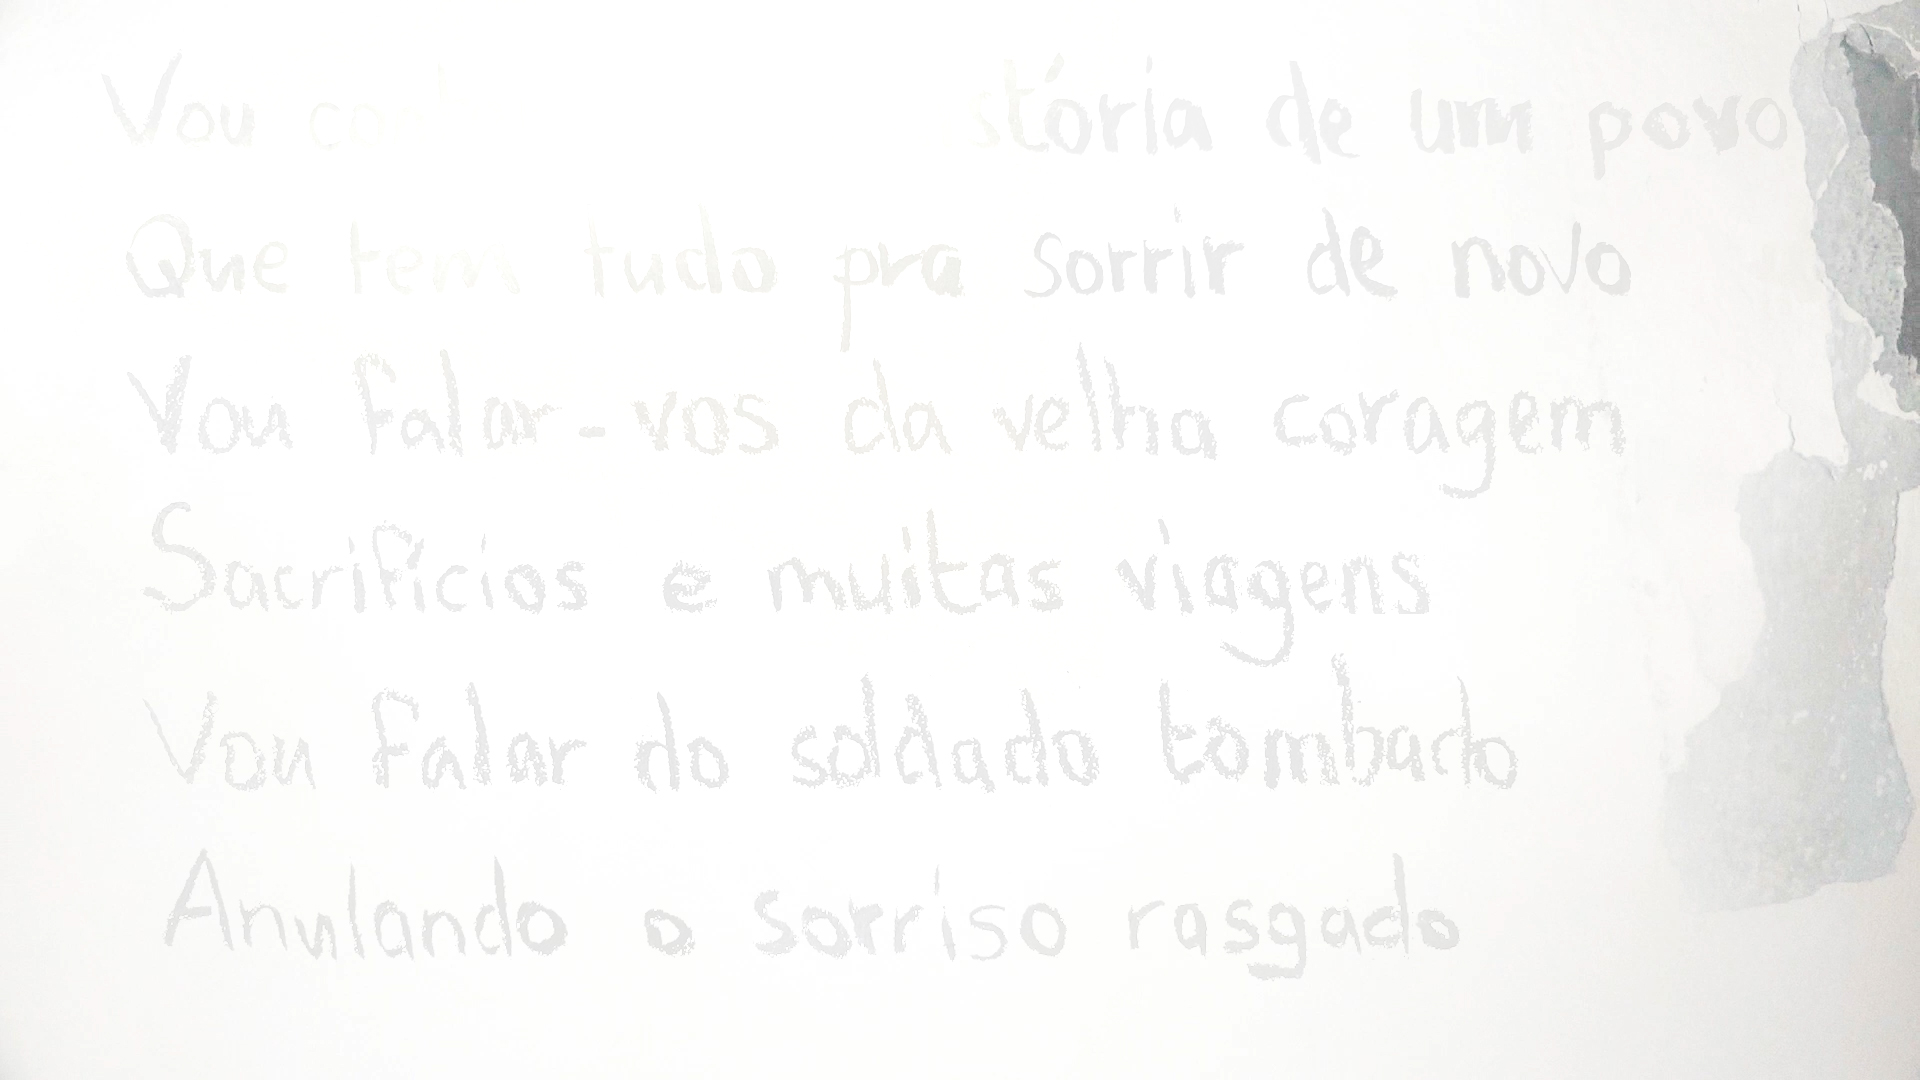 Vou de um povo
Que tem tudo pra sorrir de novo
Vou falar-vos da velha coragem
Sacrifícios e muitas viagens
Vou falar do soldado tombado
Anulando o sorriso rasgado